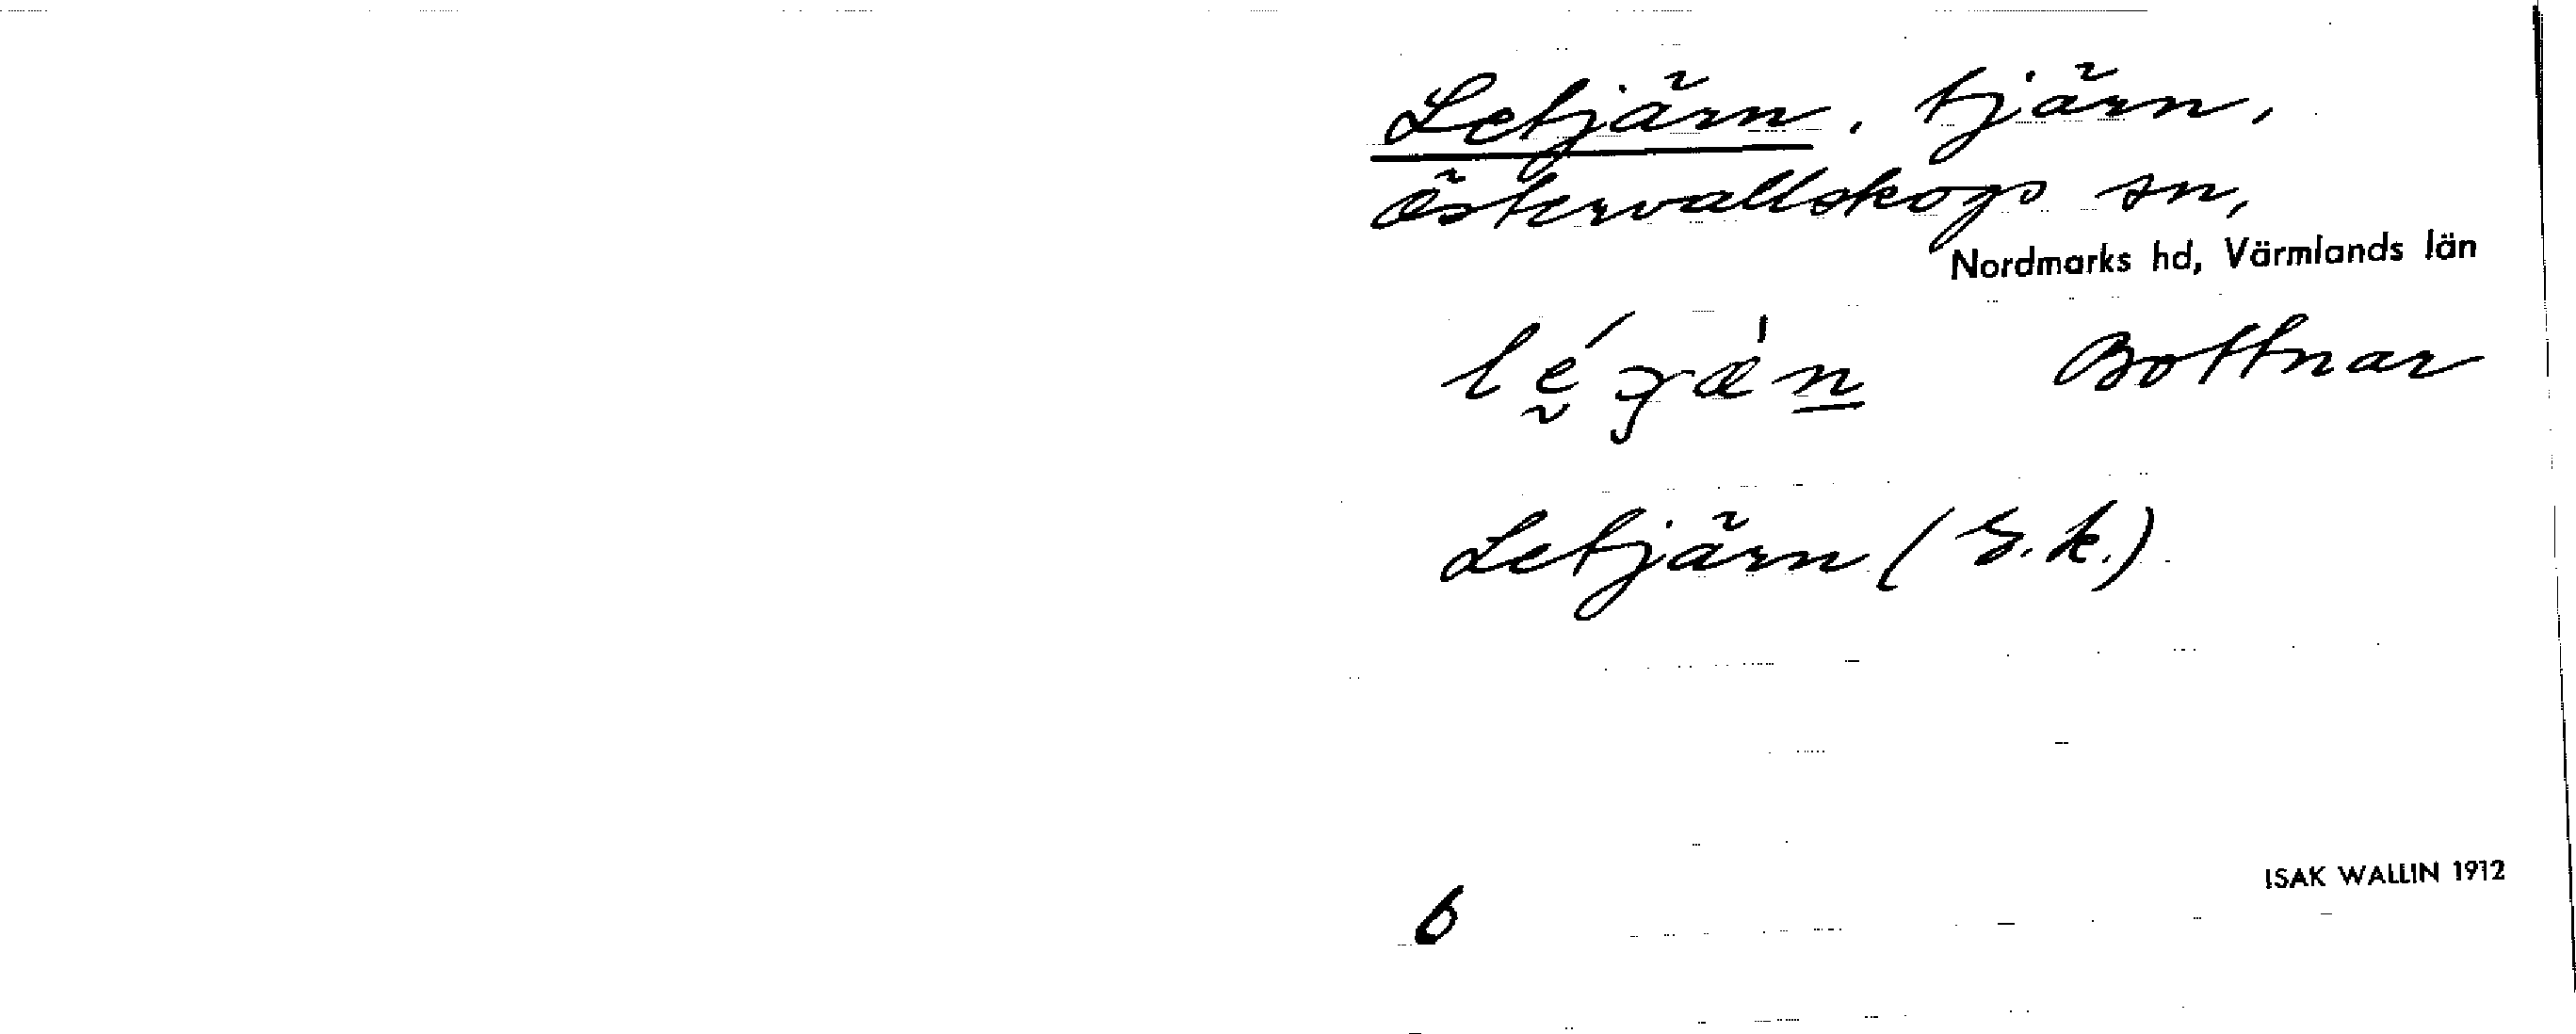 Letjärn, tjärn,
Östervallskogs sn,
Nordmarks hd, Värmlands län
Bottnar
Letjärn (G.k.)
6
ISAK WALLIN 1912